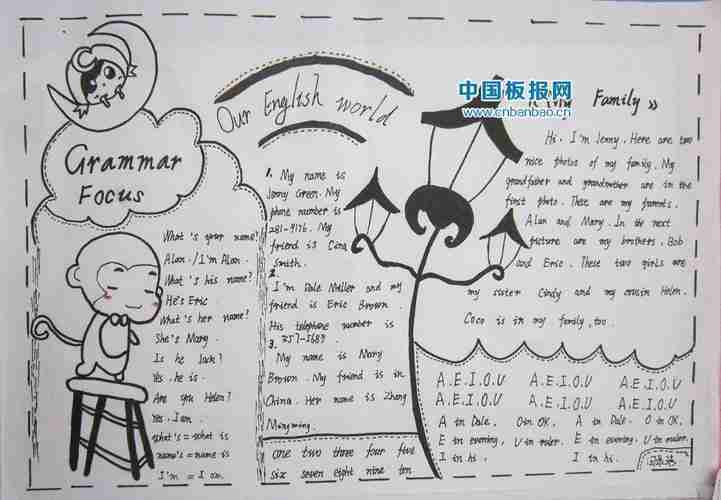 中国板报网
www.cnbanbao.cn
Grammar
Focus
What's your name?
Alan / I'm Alan.
What's his name?
He's Eric
What's her name?
She's Mary.
Is he Jack?
Yes. he is.
Are you Helen?
Yes. I am.
what's = what is
name's = name is
I'm = I am.
Our English world
1. My name is
Jenny Green. My
phone number is
281-9176. My
friend is Gina
Smith.
2.
I'm Dale Miller and my
friend is Eric Brown.
His telephone number is
357-5689
3.
My name is Mary
Brown. My friend is in
China. Her name is Zhang
Mingming.
one two three four five
six seven eight nine ten
My Family 》
Hi, I'm Jenny. Here are two
nice photos of my family. My
grandfather and grandmother are in the
first photo. These are my parents.
Alan and Mary. In the next
picture are my brothers. Bob
and Eric. These two girls are
my sister Cindy and my cousin Helen.
Coco is in my family, too.
A.E.I.O.U A.E.I.O.U A.E.I.O.U
A.E.I.O.U A.E.I.O.U A.E.I.O.U
A in Dale. O in OK. A in Dale. O in OK.
E in evening. U in ruler. E in evening. U in ruler.
I in hi. I in hi.